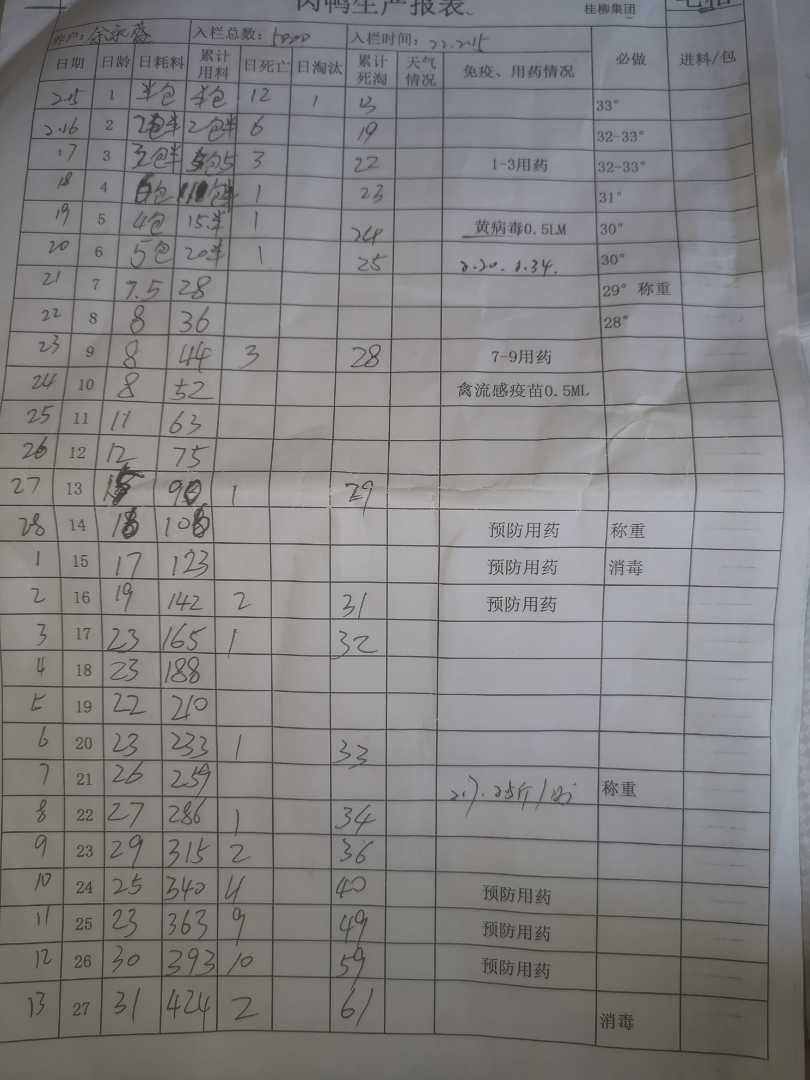 肉鸭生产报表
桂柳集团
入栏总数: 5000 入栏时间: 22.2.15
日期 日龄 日耗料 累计用料 日死亡 日淘汰 累计死淘 天气情况 免疫、用药情况 必做 进料/包
2.15 1 半包 半包 12 1 13 33°
2.16 2 2包半 6 19 32-33°
17 3 3 22 1-3用药 32-33°
18 4 6包 1 23 31°
19 5 4包 15半 1 24 黄病毒0.5LM 30°
20 6 5包 20半 1 25 30°
21 7 7.5 28 29° 称重
22 8 8 36 28°
23 9 8 44 3 28 7-9用药
24 10 8 52 禽流感疫苗0.5ML
25 11 11 63
26 12 12 75
27 13 15 90 1 29
28 14 106 预防用药 称重
1 15 17 123 预防用药 消毒
2 16 19 142 2 31 预防用药
3 17 23 165 1 32
4 18 23 188
5 19 22 210
6 20 23 233 1 33
7 21 26 259 称重
8 22 27 286 1 34
9 23 29 315 2 36
10 24 25 340 4 40 预防用药
11 25 23 363 9 49 预防用药
12 26 30 393 10 59 预防用药
13 27 31 424 2 61 消毒